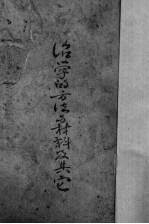 治学的方法与材料及其它